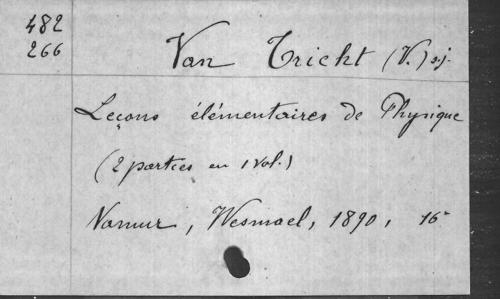 482
266
Van Tricht (V.) sj.
Leçons élémentaires de Physique
(2 parties en 1 vol.)
Namur, Wesmael, 1890, 16°